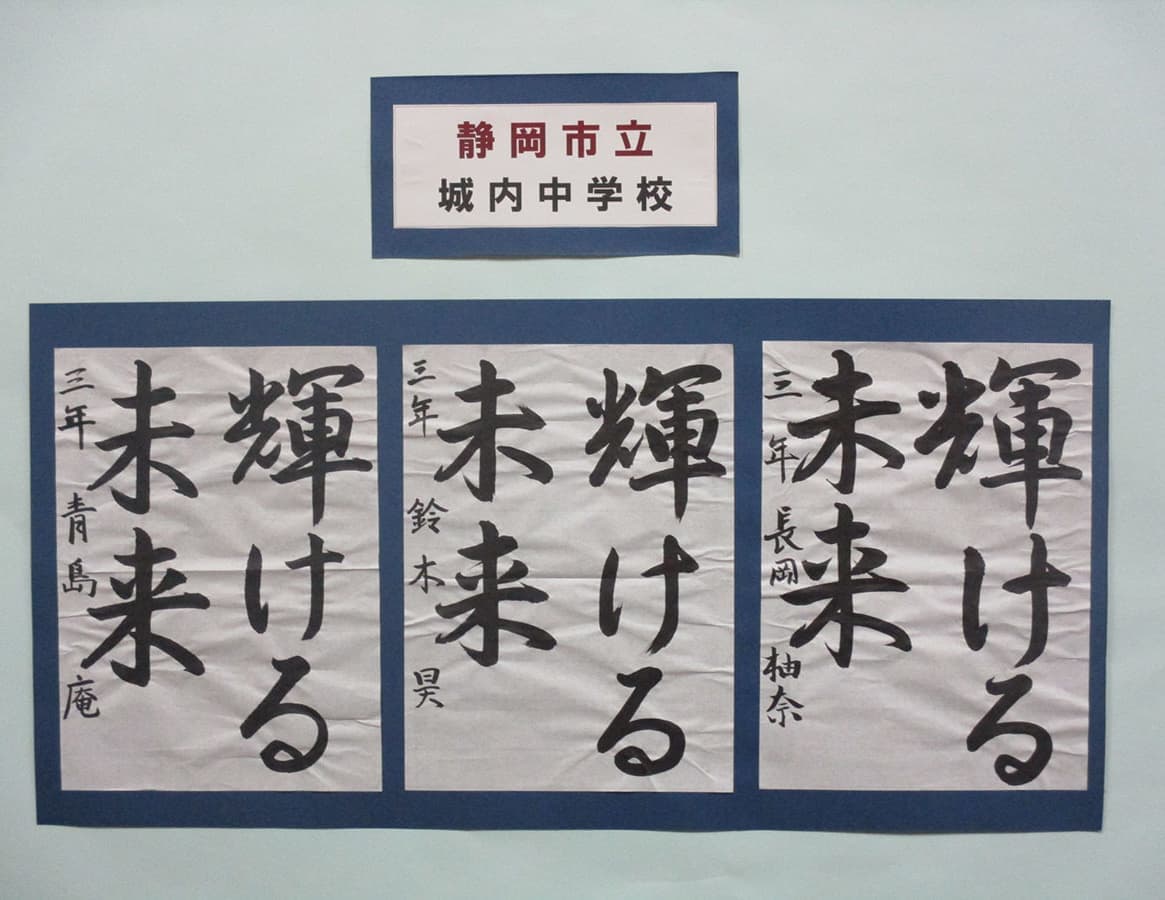 静岡市立
城内中学校
輝ける
未来
三年 長岡 柚奈
輝ける
未来
三年 鈴木 昊
輝ける
未来
三年 青島 庵